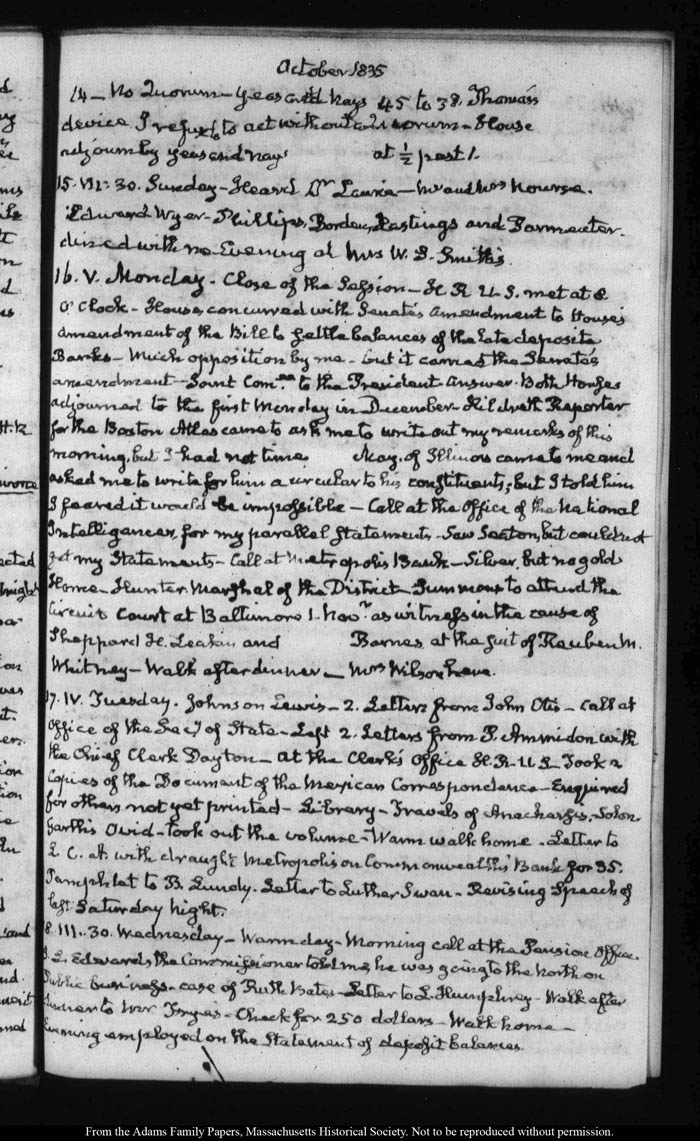 October 1835
14 – No Quorum – Yeas and Nays 45 to 38. Thomas's
device I refuse to act without a Quorum – House
adjourn by yeas and nays at ½ past 1.
15. VII: 30. Sunday – Heard Dr Laurie – Mr and Mrs Nourse.
Edward Wyer – Phillips, Borden, Hastings and Parmenter
dined with me. Evening at Mrs W. S. Smith's.
16. V. Monday. Close of the Session – H R U S. met at 8.
O'Clock – House concurred with Senate's amendment to House's
amendment of the Bill to settle balances of the late deposite
Banks – Much opposition by me – but it carried the Senate's
amendment – Joint Comee to the President. Answer. Both Houses
adjourned to the first Monday in December. Hildreth Reporter
for the Boston Atlas came to ask me to write out my remarks of this
morning, but I had not time May, of Illinois came to me and
asked me to write for him a circular to his constituents; but I told him
I feared it would be impossible – Call at the Office of the National
Intelligencer, for my parallel Statements – Saw Seaton, but could not
get my Statements – Call at Metropolis Bank – Silver, but no gold
Home – Hunter Marshal of the District – Summons to attend the
Circuit Court at Baltimore 1. Novr as witness in the cause of
Sheppard H. Leakin and Barnes at the suit of Reuben M.
Whitney – Walk after dinner – Mrs Wilson here.
17. IV. Tuesday. Johnson Lewis – 2. Letters from John Otis – call at
Office of the Secy of State – Left 2. Letters from P. Ammidon with
the Chief Clerk Dayton – at the Clerk's Office H. R. U. S. Took 2
Copies of the Document of the Mexican Correspondence – Enquired
for others not yet printed – Library – Travels of Anacharsis, Solon
Garth's Ovid – took out the volume – Warm walk home. Letter to
with draught Metropolis on Commonwealth's Bank for 35.
Pamphlet to B. Lundy. Letter to Luther Swan – Revising Speech of
last Saturday night.
18. III. 30. Wednesday – Warm day – Morning call at the Pension Office.
J. L. Edwards the Commissioner told me, he was going to the North on
Public business – case of Ruth Bates – Letter to L. Humphrey – Walk after
dinner to Mr Frye's – Check for 250 dollars – Walk home –
Evening employed on the Statement of deposit balances
From the Adams Family Papers, Massachusetts Historical Society. Not to be reproduced without permission.